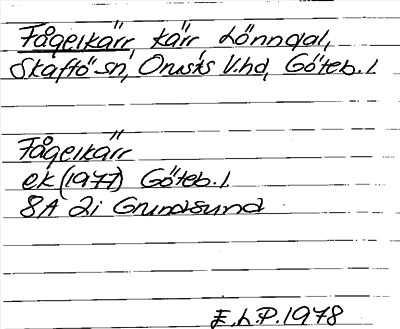 Fågelkärr, kärr, Lönndal,
Skaftö sn, Orusts V.hd, Göteb. l.
Fågelkärr
ek (1977) Göteb. l.
8A 2i Grundsund
E.L.P. 1978